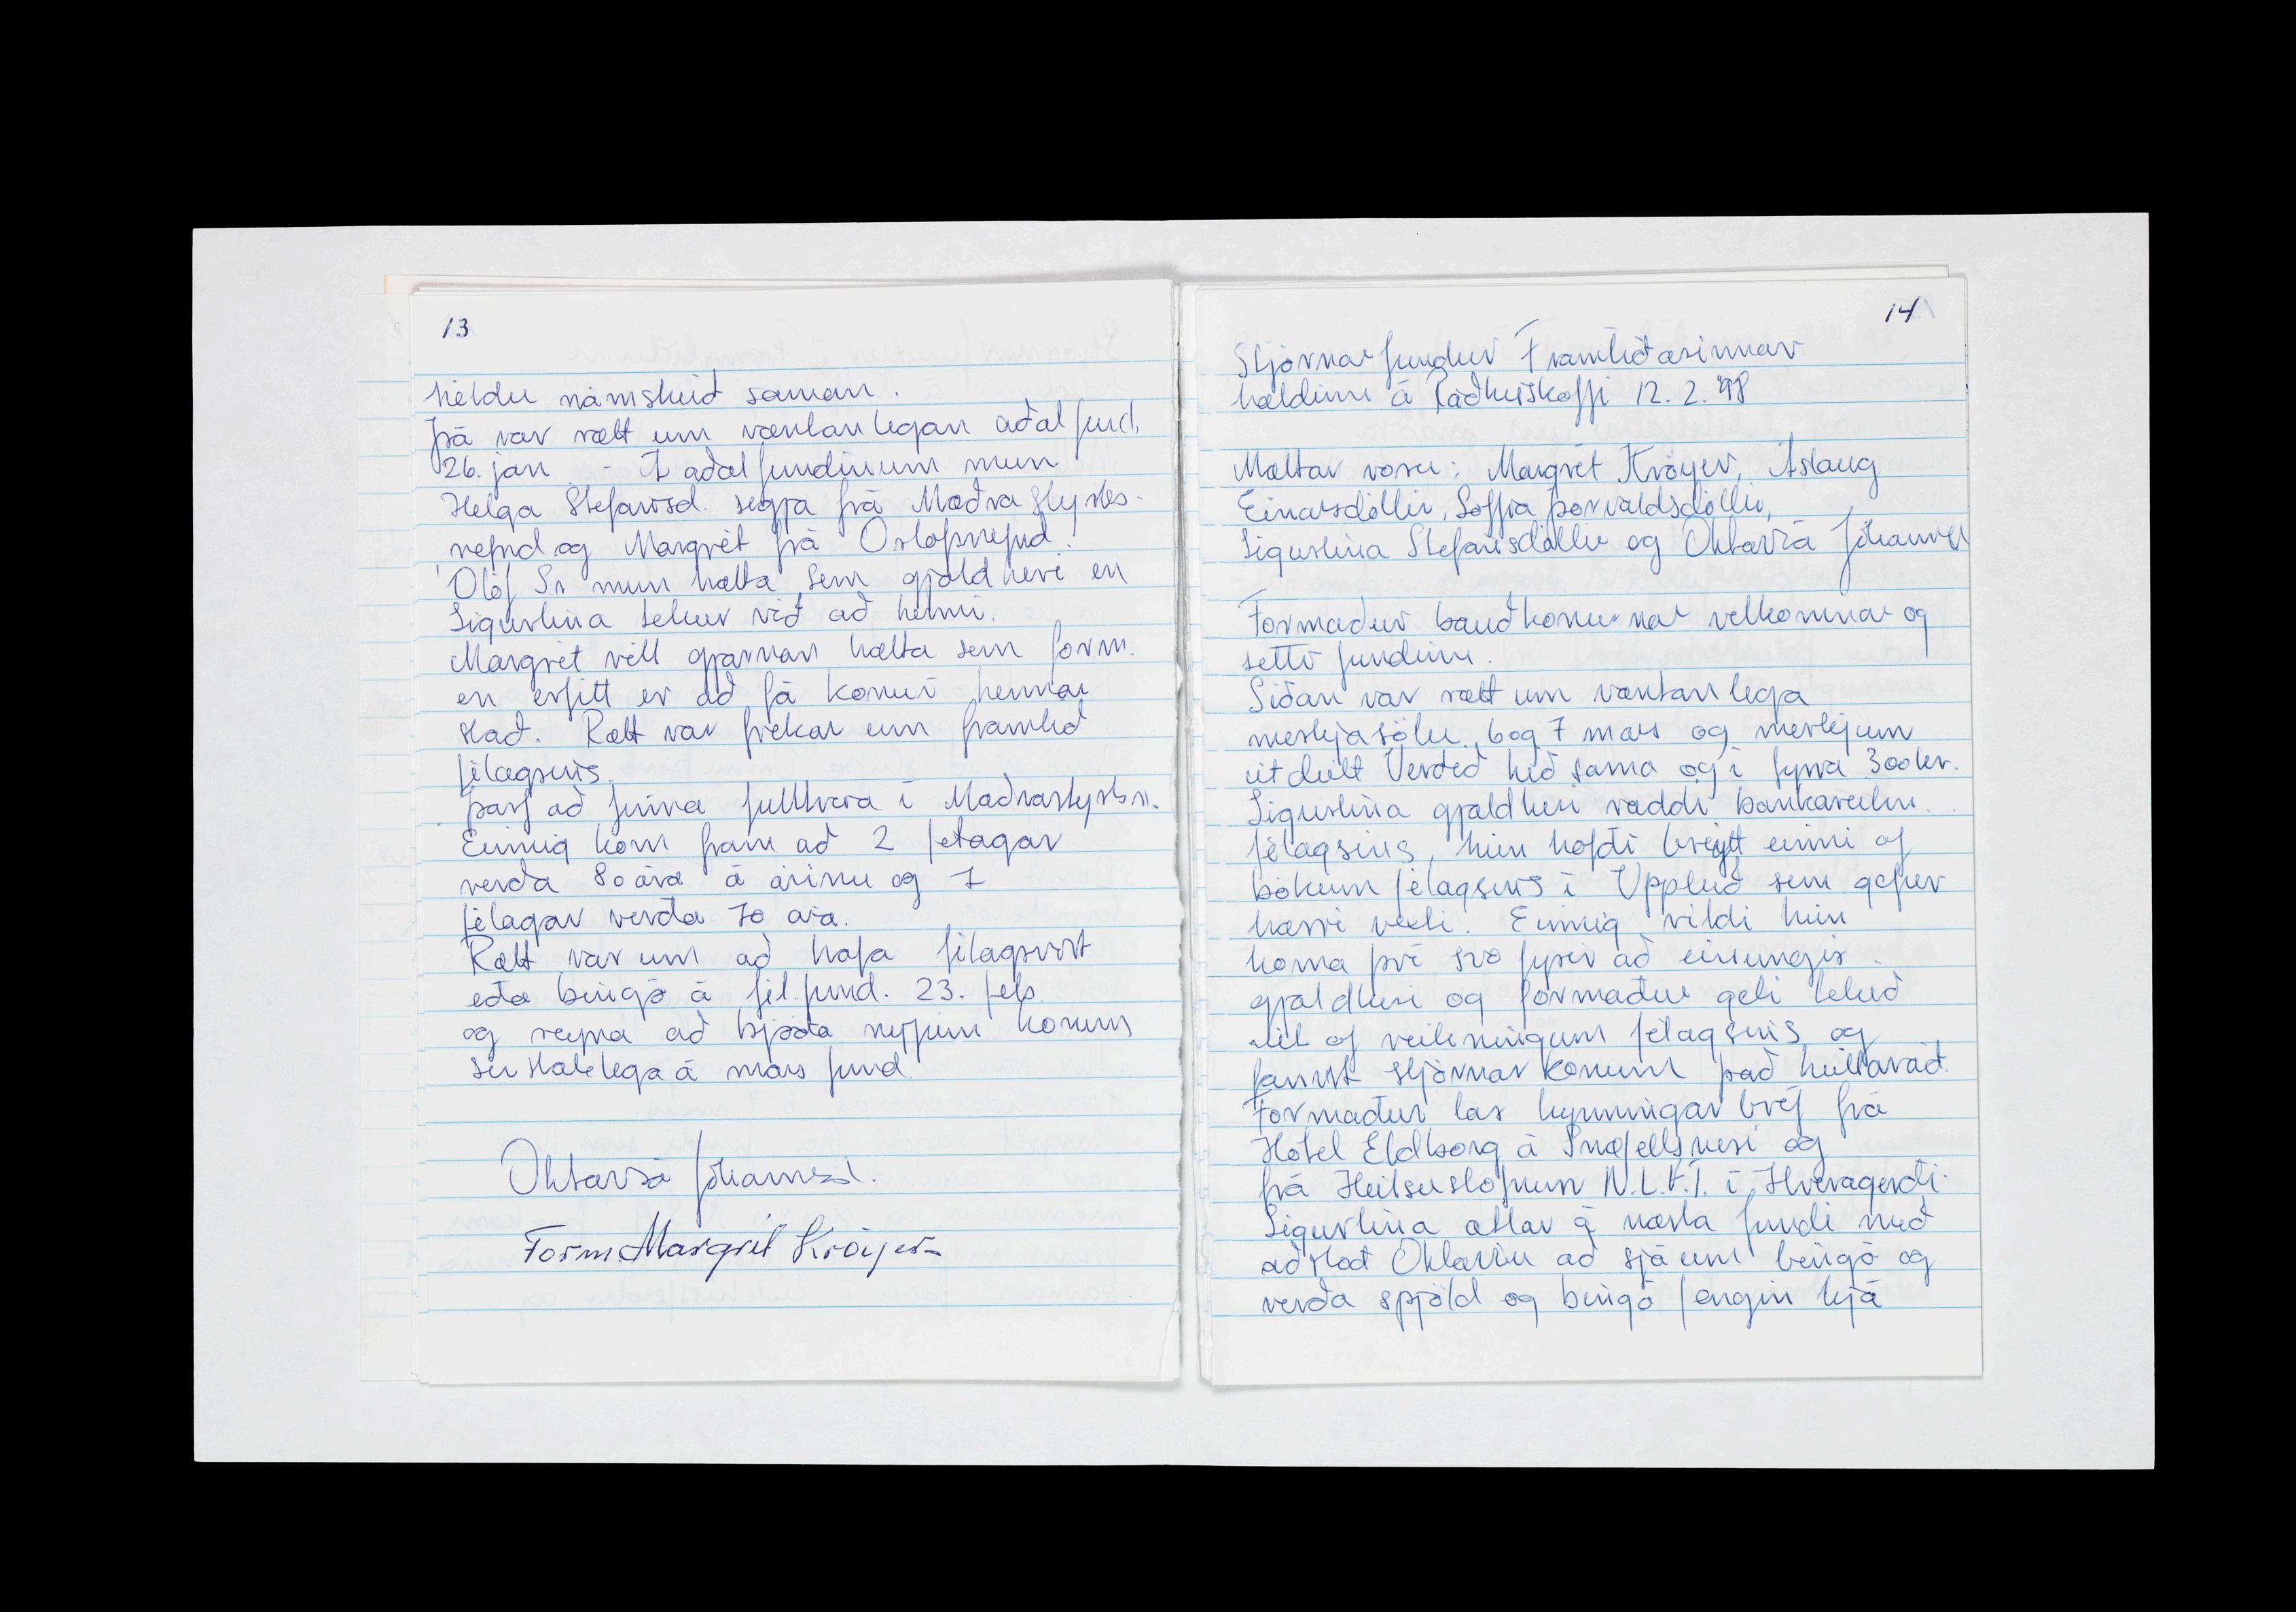 13
héldu námskeið saman.
Þá var rætt um væntanlegan aðalfund,
26. jan - Á aðalfundinum mun
Helga Stefánsd. segja frá Mæðrastyrks-
nefnd og Margrét frá Orlofsnefnd.
Ólöf Sn mun hætta sem gjaldkeri en
Sigurlína tekur við að henni.
Margrét vill gjarnan hætta sem form.
en erfitt er að fá konu í hennar
stað. Rætt var frekar um framtíð
félagsins.
Þarf að finna fulltrúa í Mæðrastyrksn.
Einnig kom fram að 2 félagar
verða 80 ára á árinu og 7
félagar verða 70 ára.
Rætt var um að hafa félagsvist
eða bingó á fél.fund. 23. feb.
og reyna að bjóða nýjum konum
sérstaklega á mars fund.
Oktavía Jóhannesd.
Form. Margrét Kröyer
14
Stjórnarfundur Framtíðarinnar
haldinn á Ráðhúskaffi 12. 2. '98
Mættar voru: Margrét Kröyer, Áslaug
Einarsdóttir, Soffía Þorvaldsdóttir,
Sigurlína Stefánsdóttir og Oktavía Jóhannes
Formaður bauð konurnar velkomnar og
setti fundinn.
Síðan var rætt um væntanlega
merkjasölu 6 og 7 mars og merkjum
útdeilt Verðið hið sama og í fyrra 300 kr.
Sigurlína gjaldkeri ræddi bankareikn.
félagsins, hún hafði breytt einni af
bókum félagsins í Uppleið sem gefur
hærri vexti. Einnig vildi hún
koma því svo fyrir að einungis
gjaldkeri og formaður geti tekið
út af reikningum félagsins og
fannst stjórnarkonum það heillaráð.
Formaður las kynningarbréf frá
Hótel Eldborg á Snæfellsnesi og
frá Heilsustofnun N.L.F.Í. í Hveragerði.
Sigurlína ætlar á næsta fundi með
aðstoð Oktavíu að sjá um bingó og
verða spjöld og bingó fengin hjá